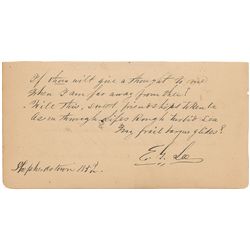 If thou wilt give a thought to me
When I am far away from thee!
While this, sweet friendship's token
As on through life's rough turbid sea
My frail barque glides!
E. G. Lee
Shepherdstown 1852